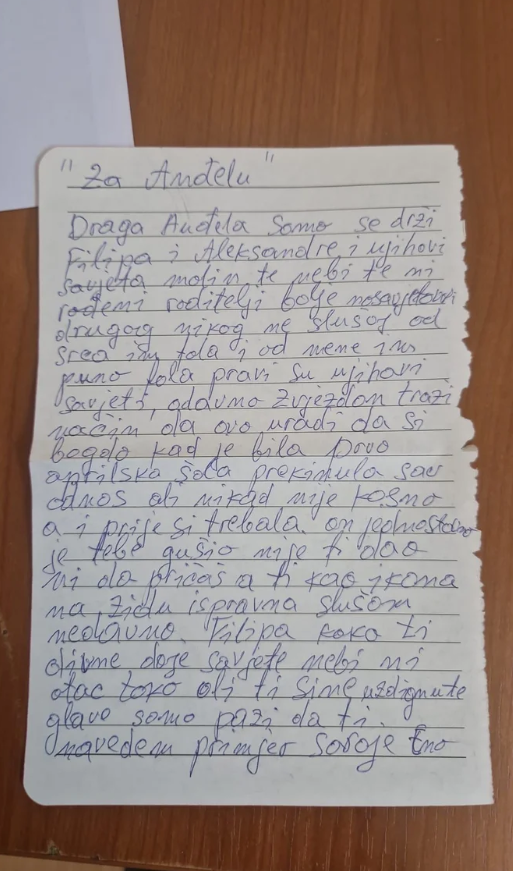 "Za Anđelu"
Draga Anđela samo se drži
Filipa i Aleksandre i njihovi
savjeta molin te nebi te ni
rođeni roditelji bolje nosavjetovali
drugog nikog ne slušoj od
srca im fala i od mene im
puno fola pravi su njihovi
savjeti, odavno Zvjezdan traži
način da ovo uradi da si
bogdo kad je bila prvo
aprilska šola prekinula sav
odnos ali nikad nije kosno
a i prije si trebala. on jednostavno
je tebe gušio nije ti dao
ni da pričaš a ti kao ikona
na zidu ispravna slušom
nedavno. Filipa koko ti
divne doje savjete nebi ni
otac toko oli ti sime uzdignute
glave somo pazi da ti.
navedem primjer Soroje